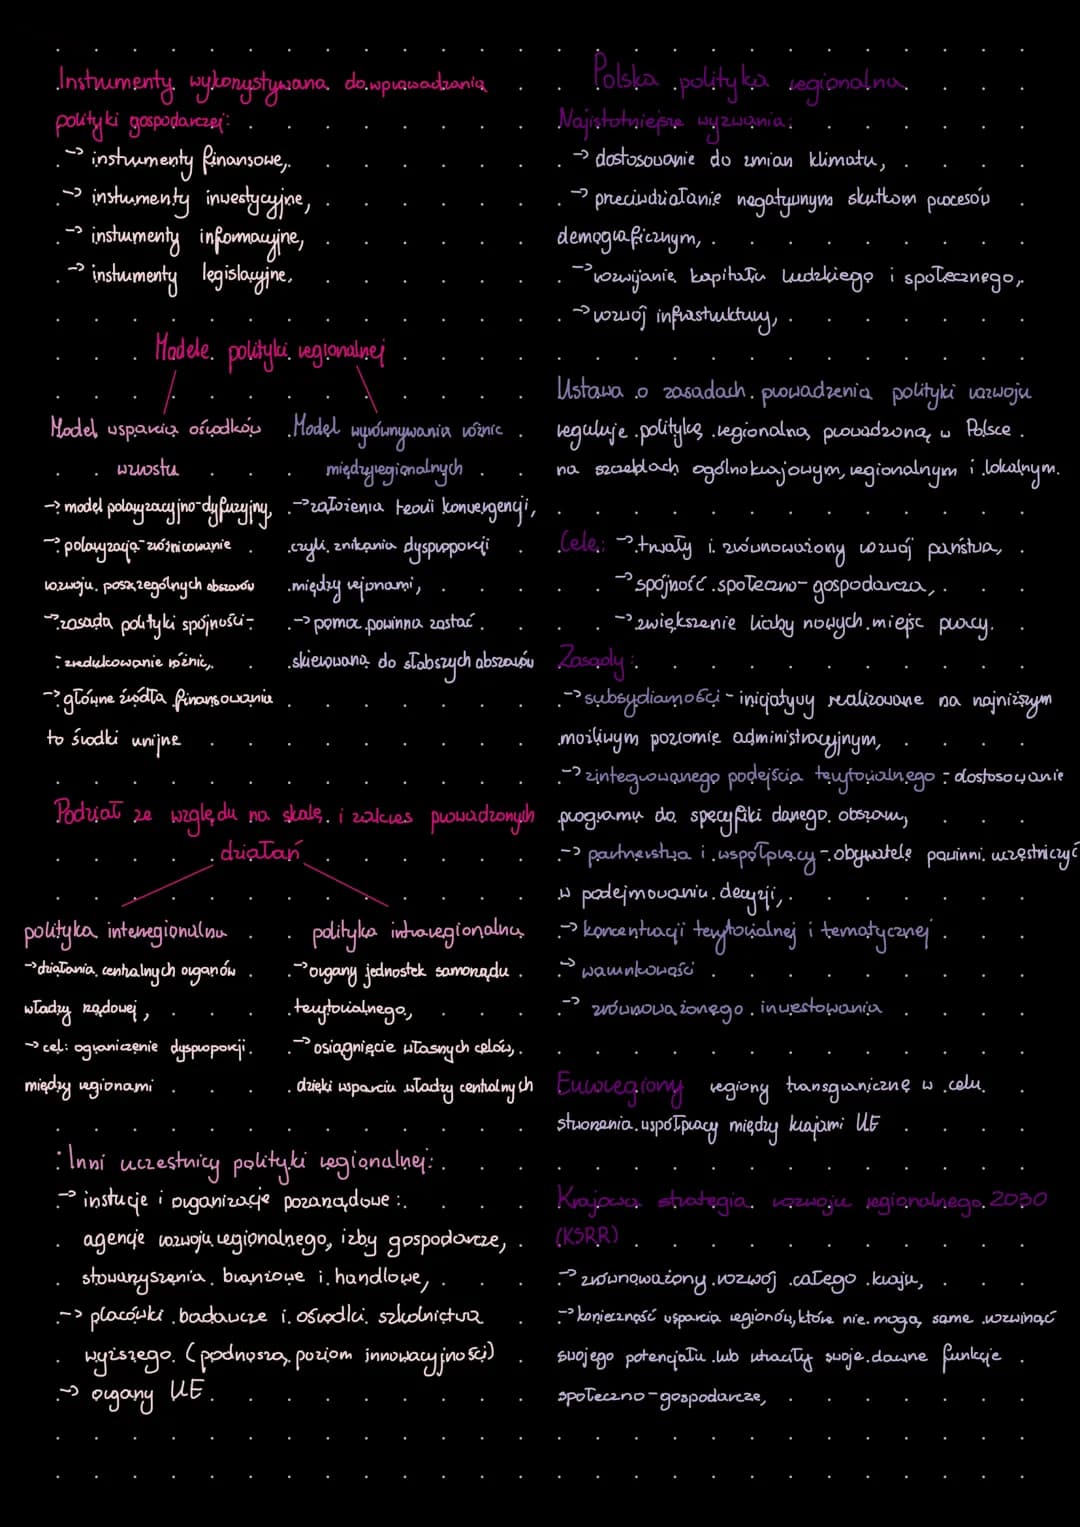 Instrumenty wykorzystywana do wprowadzania
polityki gospodarczej:
-> instrumenty finansowe,
-> instrumenty inwestycyjne,
-> instrumenty informacyjne,
-> instrumenty legislacyjne,
Modele polityki regionalnej
Model wsparcia ośrodków
wzrostu
-> model polaryzacyjno-dyfuzyjny,
-> polaryzacja-zróżnicowanie
rozwoju poszczególnych obszarów
-> zasada polityki spójności-
- zredukowanie różnic,
-> główne źródła finansowania
to środki unijne
Model wyrównywania różnic
międzyregionalnych
-> założenia teorii konwergencji,
czyli znikania dysproporcji
między rejonami,
-> pomoc powinna zostać
skierowana do słabszych obszarów
Podział ze względu na skalę i zakres prowadzonych
działań
polityka interregionalna
-> działania centralnych organów
władzy rządowej,
-> cel: ograniczenie dysproporcji
między regionami
polityka intraregionalna
-> organy jednostek samorządu
terytorialnego,
-> osiągnięcie własnych celów,
dzięki wsparciu władzy centralnych
Inni uczestnicy polityki regionalnej:
-> instucje i organizacje pozarządowe:
agencje rozwoju regionalnego, izby gospodarcze,
stowarzyszenia branżowe i handlowe,
-> placówki badawcze i ośrodki szkolnictwa
wyższego (podnoszą poziom innowacyjności)
-> organy UE
Polska polityka regionalna
Najistotniejsze wyzwania:
-> dostosowanie do zmian klimatu,
-> przeciwdziałanie negatywnym skutkom procesów
demograficznym,
-> rozwijanie kapitału ludzkiego i społecznego,
-> rozwój infrastruktury,
Ustawa o zasadach prowadzenia polityki rozwoju
reguluje politykę regionalną prowadzoną w Polsce
na szczeblach ogólnokrajowym, regionalnym i lokalnym.
Cele: -> trwały i zrównoważony rozwój państwa,
-> spójność społeczno-gospodarcza,
-> zwiększenie liczby nowych miejsc pracy.
Zasady:
-> subsydiarności - inicjatywy realizowane na najniższym
możliwym poziomie administracyjnym,
-> zintegrowanego podejścia terytorialnego - dostosowanie
programu do specyfiki danego obszaru,
-> partnerstwa i współpracy - obywatele powinni uczęstniczyć
w podejmowaniu decyzji,
-> koncentracji terytorialnej i tematycznej
-> warunkowości
-> zrównoważonego inwestowania
Euroregiony regiony transgraniczne w celu
stworzenia współpracy między krajami UE
Krajowa strategia rozwoju regionalnego 2030
(KSRR)
-> zrównoważony rozwój całego kraju,
-> konieczność wsparcia regionów, które nie mogą same rozwinąć
swojego potencjału lub utraciły swoje dawne funkcje
społeczno-gospodarcze,